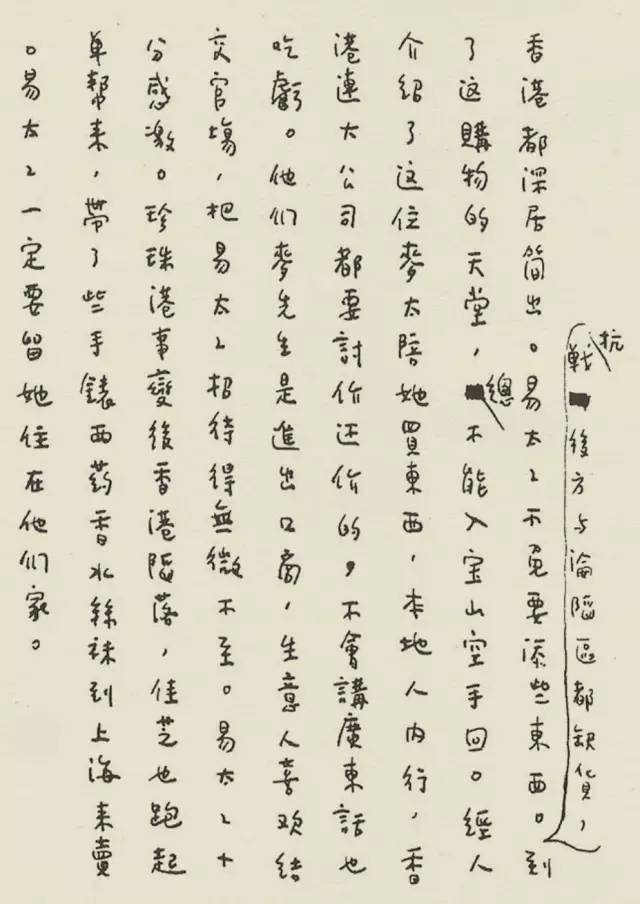 抗戰後方与淪陷區都缺貨，
香港都深居简出。易太〻不免要添些東西。到
了这購物的天堂，總不能入宝山空手回。經人
介紹了这位麥太陪她買東西，本地人内行，香
港連大公司都要討价还价的，不會講廣東話也
吃虧。他们麥先生是進出口商，生意人喜欢结
交官場，把易太〻招待得無微不至。易太〻十
分感激。珍珠港事變後香港陷落，佳芝也跑起
单幫来，帶了些手錶西药香水絲袜到上海来賣
。易太〻一定要留她住在他们家。